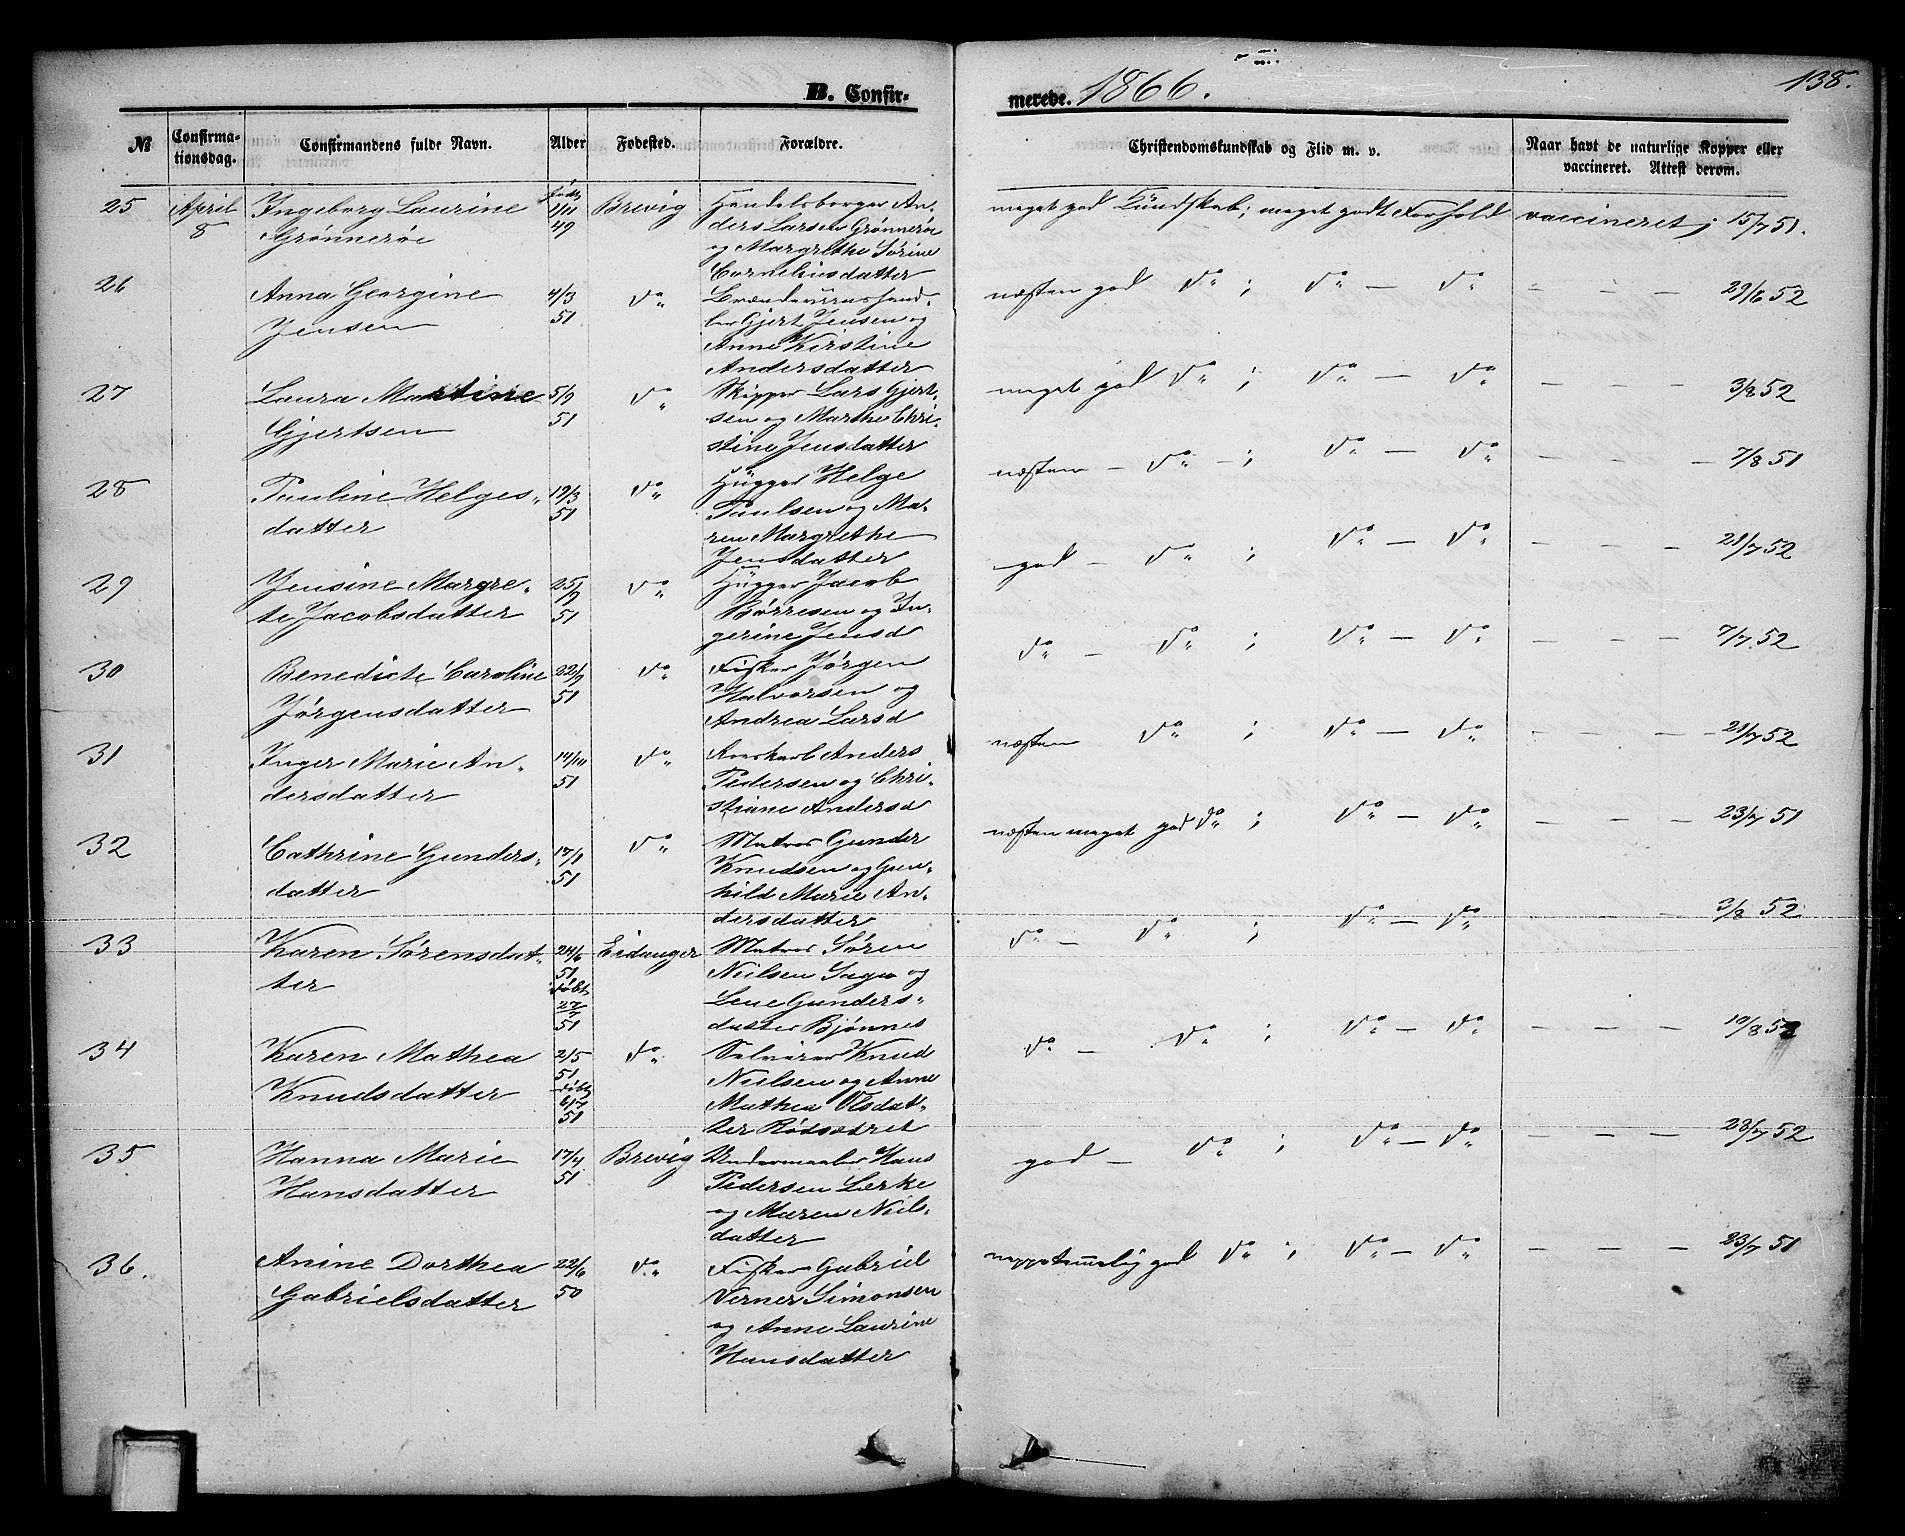 B. Confir-
merede. 1866.
138.
№
Confirma-
tionsdag.
Confirmandens fulde Navn.
Alder
Fødested.
Forældre.
Christendomskundskab og Flid m. v.
Naar havt de naturlige Kopper eller
vaccineret. Attest derom.
25 April 8 Ingeborg Laurine Grønnerøe født 1/11 49 Brevig
Handelsborger An-
ders Larsen Grønnerøe
og Margrethe Sørine
Corneliusdatter
meget god Kundskab; meget godt Forhold vaccineret; 15/7 51.
26 Anna Georgine Jensen 4/3 51 do
Brændeviinshand-
ler Gjert Jensen og
Anne Kirstine
Andersdatter
næsten god do ; do — do - — — 29/6 52
27 Laura Martine Gjertsen 5/9 51 do
Skipper Lars Gjert-
sen og Marthe Chri-
stine Jensdatter
meget god do ; do — do — — — 3/8 52
28 Pauline Helges-
datter 19/3 51 do
Hugger Helge
Paulsen og Ma-
ren Margrethe
Jensdatter
næsten — do — ; do — do — — — 7/8 51
29 Jensine Margre-
te Jacobsdatter 25/9 51 do
Hugger Jacob
Børresen og In-
gerine Jensd
god — do ; do — do — — — 21/7 52
30 Benedicte Caroline
Jørgensdatter 22/9 51 do
Fisker Jørgen
Halvorsen og
Andrea Larsd
do — do ; do — do — — — 7/7 52
31 Inger Marie An-
dersdatter 14/10 51 do
Anders
Pedersen og Chri-
stiane Andersd
næsten do ; do — do — — — 21/7 52
32 Cathrine Gunders-
datter 17/1 51 do
Matros Gunder
Knudsen og Gun-
hild Marie An-
dersdatter
næsten meget god do ; do — do — — — 23/7 51
33 Karen Sørensdat-
ter 24/6 51 døbt 27/7 51 Eidanger
Matros Søren
Nielsen Saga og
Lene Gunders-
datter Bjønnes
do — do ; do — do — — — 3/8 52
34 Karen Mathea
Knudsdatter 2/5 51 døbt 6/7 51 do
Selveier Knud
Nielsen og Anne
Mathea Olsdat-
ter Rødsætret
do — do ; do — do — — — 19/8 52
35 Hanna Marie
Hansdatter 17/4 51 Brevig
Hans
Pedersen Lerke
og Maren Niels-
datter
god — do ; do — do — — — 28/7 52
36. Anine Dorthea
Gabrielsdatter 22/6 50 do
Fisker Gabriel
Verner Simonsen
og Anne Laurine
Hansdatter
neppe temmelig god do ; do — do — — — 23/7 51